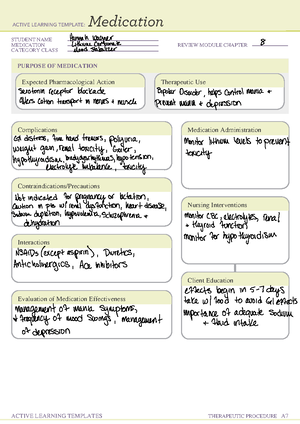 ACTIVE LEARNING TEMPLATE: Medication
STUDENT NAME Hannah Wagner
MEDICATION Lithium Carbonate
REVIEW MODULE CHAPTER 8
CATEGORY CLASS Mood stabilizer
PURPOSE OF MEDICATION
Expected Pharmacological Action
Serotonin receptor blockade
Alters cation transport in nerves + muscle
Therapeutic Use
Bipolar Disorder, helps control mania +
prevent mania + depression
Complications
GI distress, fine hand tremors, polyuria,
weight gain, renal toxicity, Goiter,
hypothyroidism, bradydysrhythmias, hypotension,
electrolyte imbalance, toxicity
Medication Administration
Monitor lithium levels to prevent
toxicity
Contraindications/Precautions
Not indicated for pregnancy or lactation,
Caution in pts w/ renal dysfunction, heart disease,
Sodium depletion, hypovolemia, Schizophrenia +
dehydration
Nursing Interventions
monitor CBC, electrolytes, renal
+ thyroid function
monitor for hypothyroidism
Interactions
NSAIDs (except aspirin), Diuretics,
Anticholinergics, Ace Inhibitors
Client Education
effects begin in 5-7 days
take w/ food to avoid GI effects
importance of adequate Sodium
+ fluid intake
Evaluation of Medication Effectiveness
management of mania symptoms,
↓ frequency of mood swings, management
of depression
ACTIVE LEARNING TEMPLATES
THERAPEUTIC PROCEDURE A7